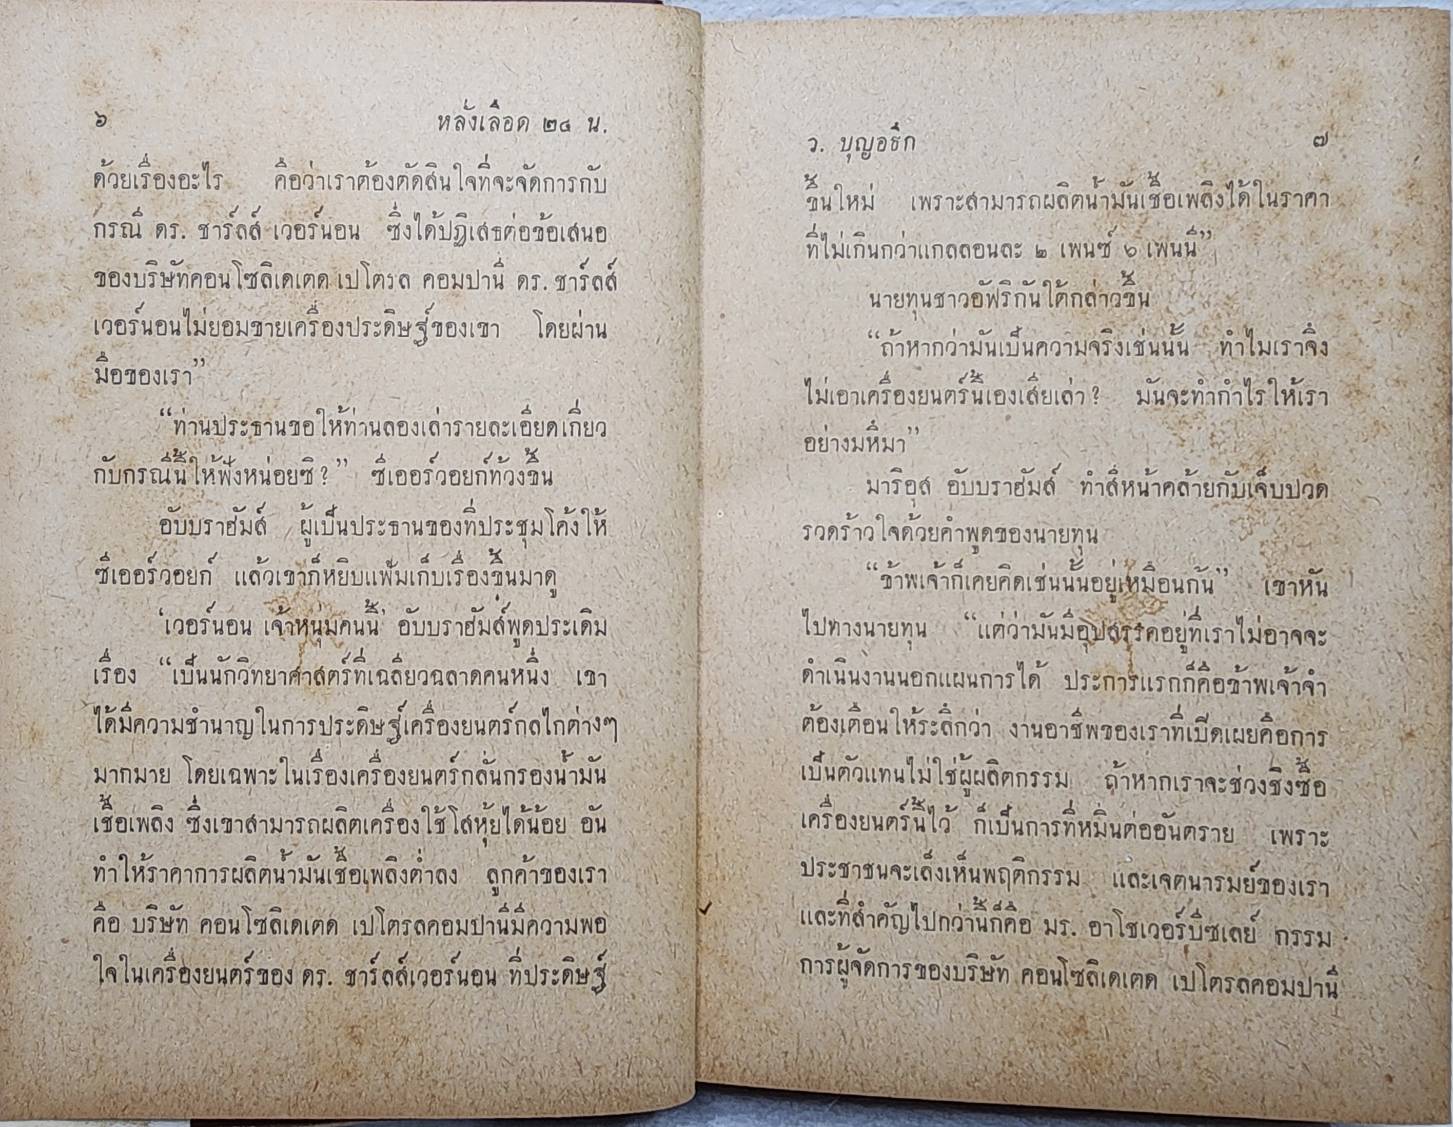 ๖ หลั่งเลือด ๒๔ น.
ด้วยเรื่องอะไร คือว่าเราต้องตัดสินใจที่จะจัดการกับ
กรณี ดร. ชาร์ลส์ เวอร์นอน ซึ่งได้ปฏิเสธต่อข้อเสนอ
ของบริษัทคอนโซลิเดเตด เปโตรล คอมปานี ดร. ชาร์ลส์
เวอร์นอนไม่ยอมขายเครื่องประดิษฐ์ของเขา โดยผ่าน
มือของเรา”
“ท่านประธานขอให้ท่านลองเล่ารายละเอียดเกี่ยว
กับกรณีนี้ให้ฟังหน่อยซิ?” ซีเออร์วอยก์ท้วงขึ้น
อับบราฮัมส์ ผู้เป็นประธานของที่ประชุมโค้งให้
ซีเออร์วอยก์ แล้วเขาก็หยิบแฟ้มเก็บเรื่องขึ้นมาดู
‘เวอร์นอน เจ้าหนุ่มคนนี้’ อับบราฮัมส์พูดประเดิม
เรื่อง “เป็นนักวิทยาศาสตร์ที่เฉลียวฉลาดคนหนึ่ง เขา
ได้มีความชำนาญในการประดิษฐ์เครื่องยนตร์กลไกต่างๆ
มากมาย โดยเฉพาะในเรื่องเครื่องยนตร์กลั่นกรองน้ำมัน
เชื้อเพลิง ซึ่งเขาสามารถผลิตเครื่องใช้โสหุ้ยได้น้อย อัน
ทำให้ราคาการผลิตน้ำมันเชื้อเพลิงต่ำลง ลูกค้าของเรา
คือ บริษัท คอนโซลิเดเตด เปโตรลคอมปานีมีความพอ
ใจในเครื่องยนตร์ของ ดร. ชาร์ลส์เวอร์นอน ที่ประดิษฐ์
ว. บุญอธึก ๗
ขึ้นใหม่ เพราะสามารถผลิตน้ำมันเชื้อเพลิงได้ในราคา
ที่ไม่เกินกว่าแกลลอนละ ๒ เพนซ์ ๖ เพนนี”
นายทุนชาวอัฟริกันใต้กล่าวขึ้น
“ถ้าหากว่ามันเป็นความจริงเช่นนั้น ทำไมเราจึง
ไม่เอาเครื่องยนตร์นี้เองเสียเล่า? มันจะทำกำไรให้เรา
อย่างมหึมา”
มาริอุส อับบราฮัมส์ ทำสีหน้าคล้ายกับเจ็บปวด
รวดร้าวใจด้วยคำพูดของนายทุน
“ข้าพเจ้าก็เคยคิดเช่นนั้นอยู่เหมือนกัน” เขาหัน
ไปทางนายทุน “แต่ว่ามันมีอุปสรรคอยู่ที่เราไม่อาจจะ
ดำเนินงานนอกแผนการได้ ประการแรกก็คือข้าพเจ้าจำ
ต้องเตือนให้ระลึกว่า งานอาชีพของเราที่เปิดเผยคือการ
เป็นตัวแทนไม่ใช่ผู้ผลิตกรรม ถ้าหากเราจะช่วงชิงซื้อ
เครื่องยนตร์นี้ไว้ ก็เป็นการที่หมิ่นต่ออันตราย เพราะ
ประชาชนจะเล็งเห็นพฤติกรรม และเจตนารมย์ของเรา
และที่สำคัญไปกว่านี้ก็คือ มร. อาโชเวอร์บีซเลย์ กรรม
การผู้จัดการของบริษัท คอนโซลิเดเตด เปโตรลคอมปานี